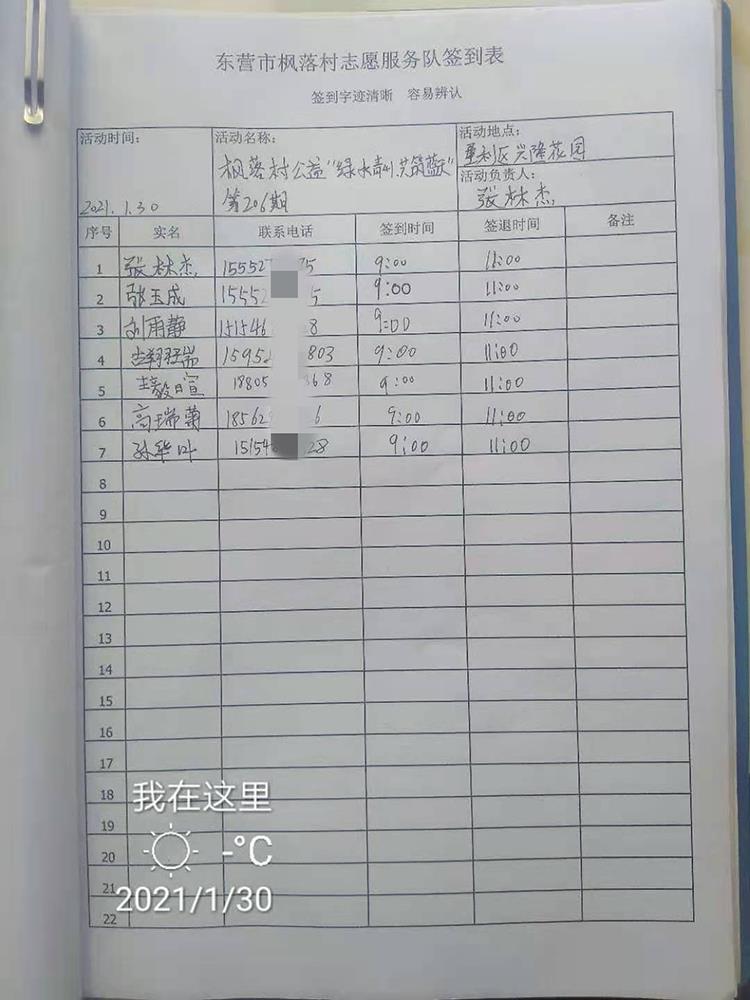 东营市枫落村志愿服务队签到表
签到字迹清晰 容易辨认
活动时间: 2021.1.30
活动名称: 枫落村公益"绿水青山,共筑蓝天"
第206期
活动地点: 垦利区兴隆花园
活动负责人: 张林杰
序号 实名 联系电话 签到时间 签退时间 备注
1 张林杰 15552 5 9:00 11:00
2 张玉成 1555 5 9:00 11:00
3 刘雨静 151546 8 9:00 11:00
4 1595 803 9:00 11:00
5 18805 68 9:00 11:00
6 高瑞菊 18562 6 9:00 11:00
7 孙华叶 15154 28 9:00 11:00
8
9
10
11
12
13
14
15
16
17
18
19
20
21
22
我在这里
-°C
2021/1/30